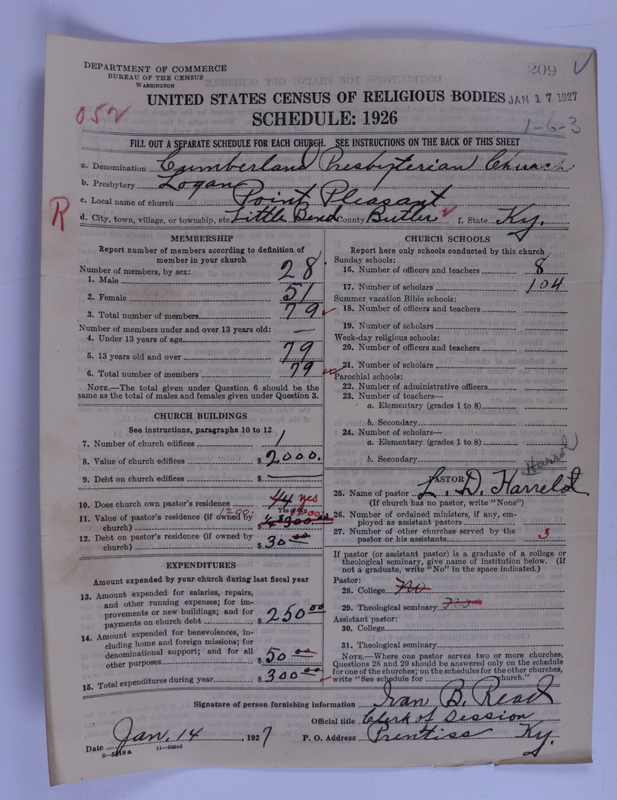 209
DEPARTMENT OF COMMERCE
BUREAU OF THE CENSUS
WASHINGTON
UNITED STATES CENSUS OF RELIGIOUS BODIES JAN 17 1927
052
SCHEDULE: 1926
1-6-3
FILL OUT A SEPARATE SCHEDULE FOR EACH CHURCH. SEE INSTRUCTIONS ON THE BACK OF THIS SHEET
a. Denomination Cumberland Presbyterian Church
b. Presbytery Logan
c. Local name of church Point Pleasant
R
d. City, town, village, or township, etc. Little Bend County Butler f. State Ky.
MEMBERSHIP
Report number of members according to definition of
member in your church
Number of members, by sex:
1. Male 28
2. Female 51
3. Total number of members 79
Number of members under and over 13 years old:
4. Under 13 years of age —
5. 13 years old and over 79
6. Total number of members 79
NOTE.—The total given under Question 6 should be the
same as the total of males and females given under Question 3.
CHURCH BUILDINGS
See instructions, paragraphs 10 to 12
7. Number of church edifices 1
8. Value of church edifices $ 2000.
9. Debt on church edifices $ —
10. Does church own pastor's residence yes
11. Value of pastor's residence (if owned by
church) $
12. Debt on pastor's residence (if owned by
church) $ 30 00
EXPENDITURES
Amount expended by your church during last fiscal year
13. Amount expended for salaries, repairs,
and other running expenses; for im-
provements or new buildings; and for
payments on church debt $ 250 00
14. Amount expended for benevolences, in-
cluding home and foreign missions; for
denominational support; and for all
other purposes $ 50 00
15. Total expenditures during year $ 300 00
CHURCH SCHOOLS
Report here only schools conducted by this church
Sunday schools:
16. Number of officers and teachers 8
17. Number of scholars 104
Summer vacation Bible schools:
18. Number of officers and teachers
19. Number of scholars
Week-day religious schools:
20. Number of officers and teachers
21. Number of scholars
Parochial schools:
22. Number of administrative officers
23. Number of teachers—
a. Elementary (grades 1 to 8)
b. Secondary
24. Number of scholars—
a. Elementary (grades 1 to 8)
b. Secondary
PASTOR
25. Name of pastor L. D. Harrelod
(If church has no pastor, write "None")
26. Number of ordained ministers, if any, em-
ployed as assistant pastors
27. Number of other churches served by the
pastor or his assistants 3
If pastor (or assistant pastor) is a graduate of a college or
theological seminary, give name of institution below. (If
not a graduate, write "No" in the space indicated.)
Pastor:
28. College No
29. Theological seminary No
Assistant pastor:
30. College
31. Theological seminary
NOTE.—Where one pastor serves two or more churches,
Questions 28 and 29 should be answered only on the schedule
for one of the churches; on the schedules for the other churches,
write "See schedule for church."
Signature of person furnishing information Ivan B. Read
Official title Clerk of Session
Date Jan. 14, 1927 P. O. Address Prentiss Ky.